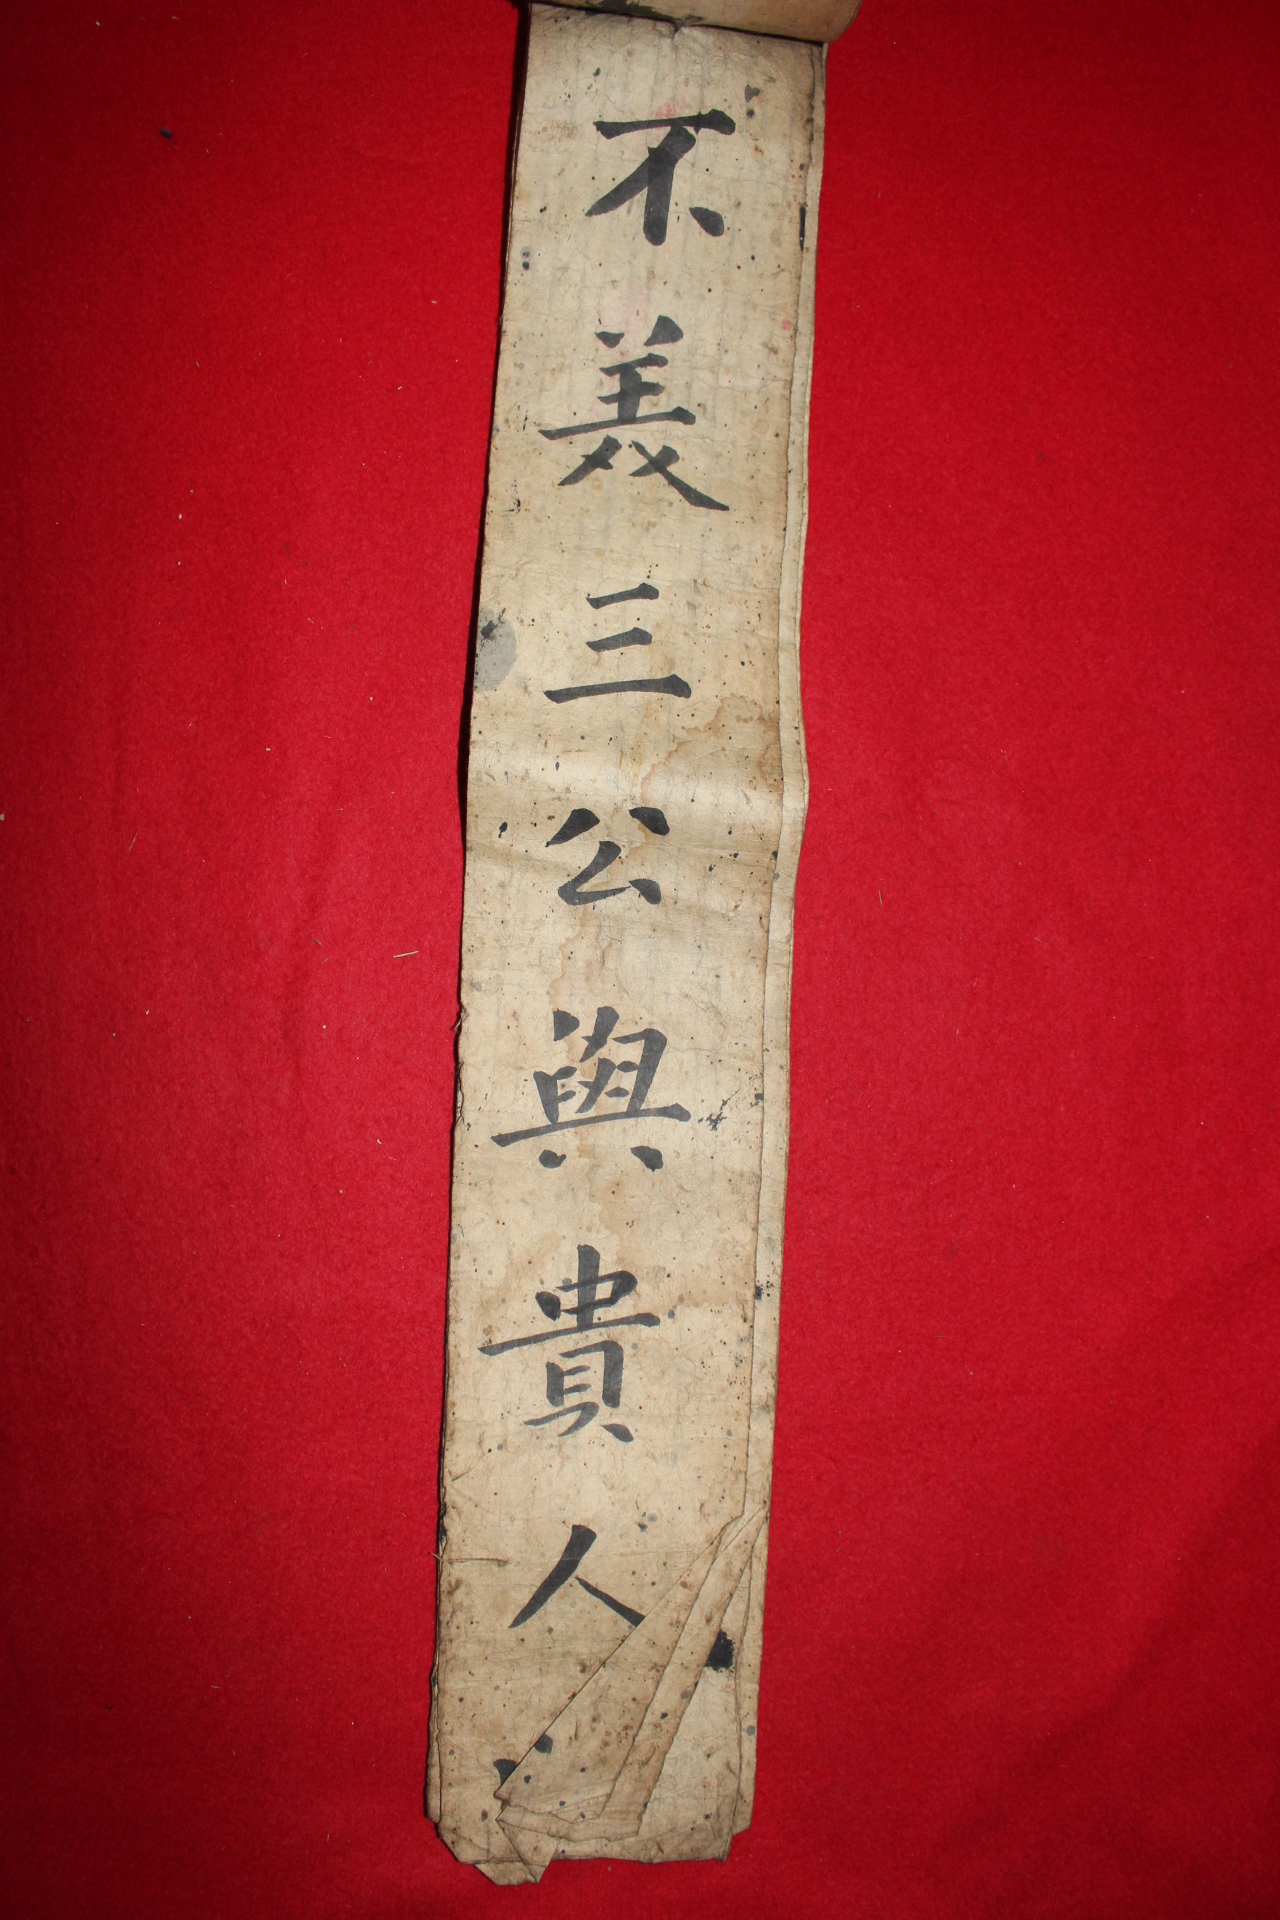 不美三公與貴人